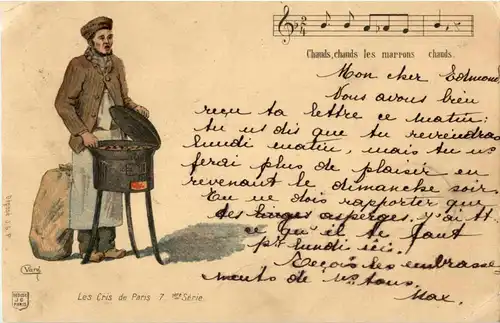 Chauds, chauds les marrons chauds.
Mon cher Edmond
Nous avons bien
reçu ta lettre ce matin:
tu ns dis que tu reviendras
lundi matin, mais tu ns
ferai plus de plaisir en
revenant le dimanche soir.
Tu ne dois rapporter que
des asperges. y'ai tt
ce qu'il te faut
pr lundi ici.
Reçois les embrasse-
ments de ns tous.
Max.
Les Cris de Paris 7. Série.